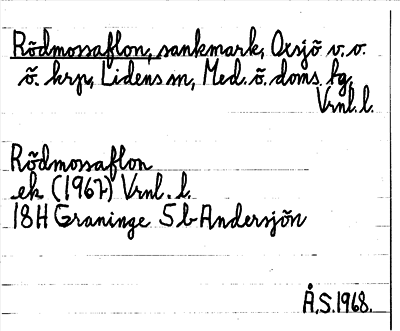 Rödmossaflon, sankmark, Oxsjö v.o.
ö. krp, Lidens sn, Med. ö. doms. bg,
Vrnl. l.
Rödmossaflon
ek (1967) Vrnl. l.
18H Graninge 5b Andersjön
Å.S. 1968.